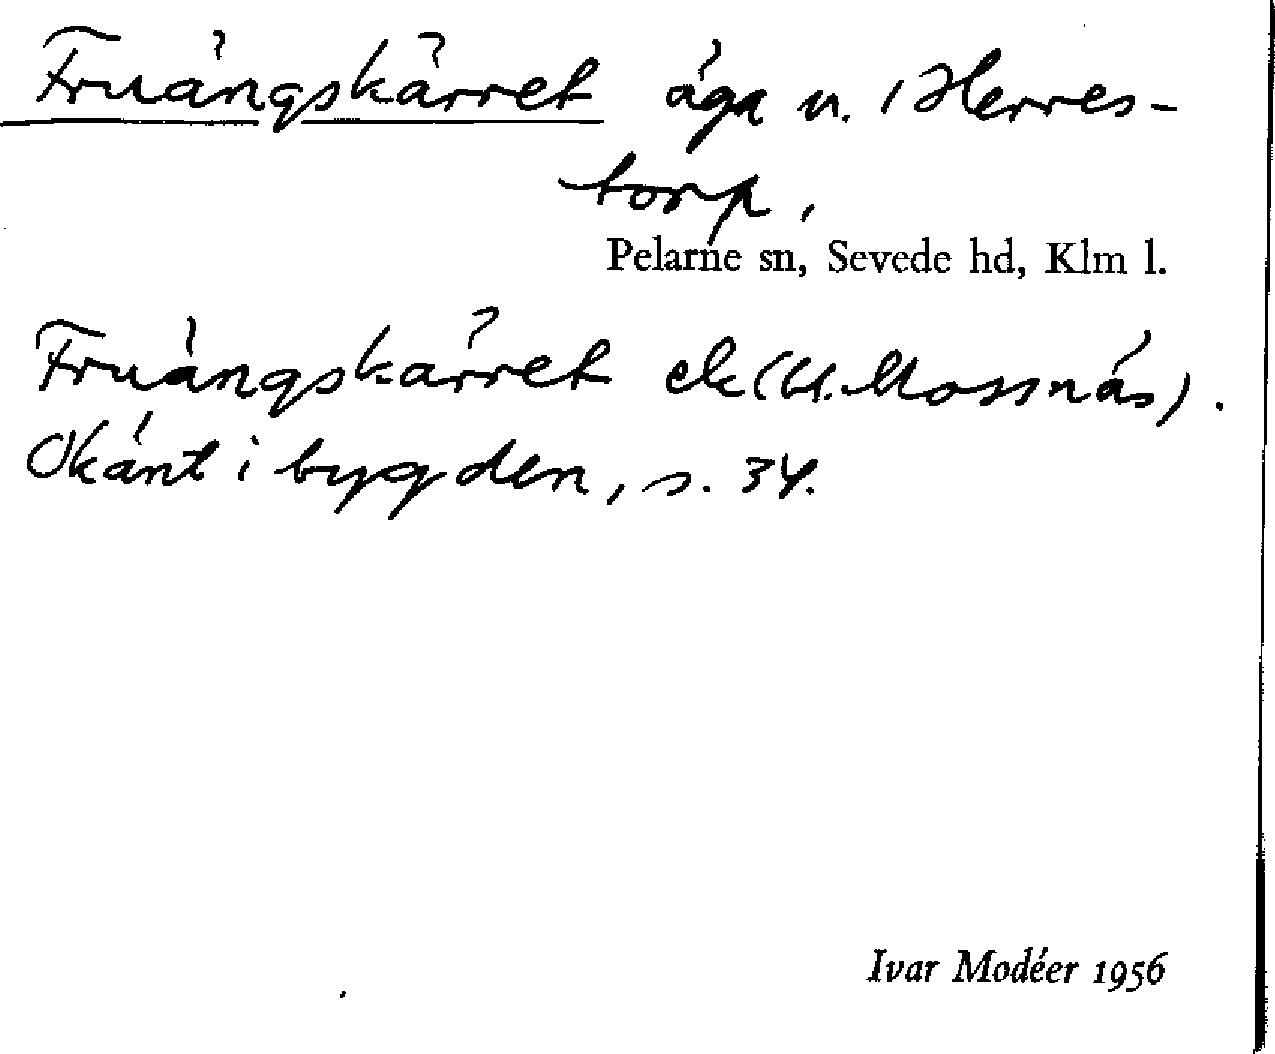 Fruängskärret äga u. Herres-
torp,
Pelarne sn, Sevede hd, Klm l.
Fruängskärret ek (bl. Mossnäs).
Okänt i bygden, s. 34.
Ivar Modéer 1956